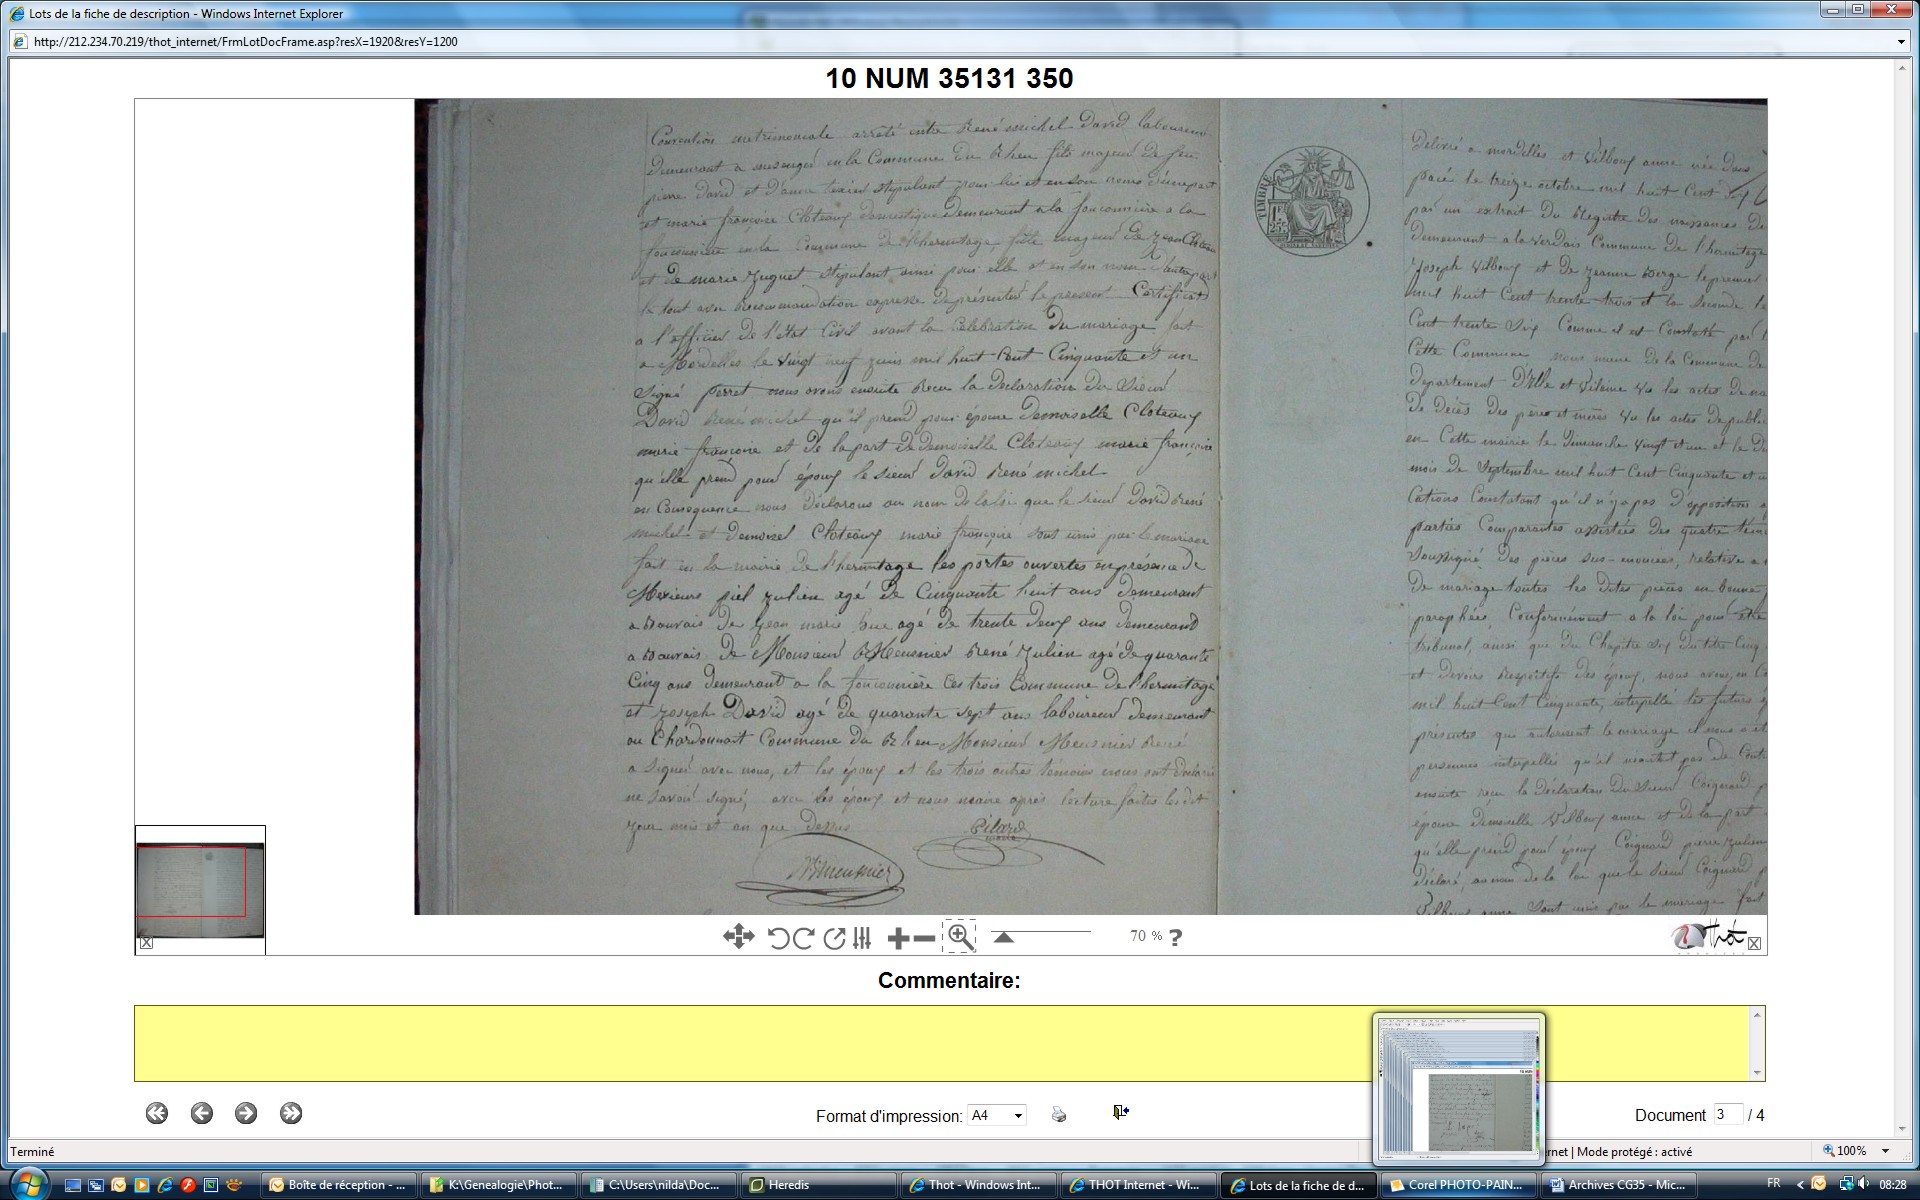 Lots de la fiche de description - Windows Internet Explorer
http://212.234.70.219/thot_internet/FrmLotDocFrame.asp?resX=1920&resY=1200
10 NUM 35131 350
Convention matrimoniale arrêté entre René michel David laboureur
Demeurant a mesengué en la Commune du Rheu fils majeur de feu
pierre David et d'anne texier stipulant pour lui et en son nom d'une part
et marie françoise Cloteaux domestique demeurant a la fouconnière a la
fouconnière en la Commune de l'hermitage, fille majeure de Jean Cloteaux
et de marie Juguet stipulant aussi pour elle et en son nom d'autre part
le tout avec Recommandation expresse de présenter le present Certificat
a l'officier de l'état Civil avant la Celebration du mariage fait
a Mordelles le vingt neuf juin mil huit Cent Cinquante et un
Signé perret nous avons ensuite Recu la declaration du Sieur
David René michel qu'il prend pour épouse demoiselle Cloteaux
marie françoise et de la part de demoiselle Cloteaux marie françoise
qu'elle prend pour époux le sieur David René michel
en Consequence nous Déclarons au nom de la loi que le sieur David René
michel et Demoisel Cloteaux marie françoise sont unis par le mariage
fait en la mairie de l'hermitage les portes ouvertes en présence de
Messieurs piel Julien agé de Cinquante huit ans demeurant
a Bauvais De Jean marie agé de trente Deux ans demeurand
a Bauvais De Monsieur Meusnier René Julien agé de quarante
Cinq ans demeurand a la fouconnière Ces trois Commune de l'hermitage
et Joseph David agé de quarante sept ans laboureur demeurant
au Chardonnait Commune du Rheu Monsieur Meusnier René
a Signé avec nous, et les époux et les trois autres témoins nous ont Déclaré
ne savoir signé, avec les époux et nous maire après lecture faites les dit
jour mois et an que Dessus
Pilard
maire
RJmeusnier
TIMBRE
1F
25c
Delivré a mordelles et Vilboux anne née dans
pacé le treize octobre mil huit Cent
par un extrait Du Registre des naissances de
demeurant a la verdais Commune de l'hermitage
Joseph Vilboux et de Jeanne Berge le premier
mil huit Cent trente trois et la seconde le
Cent trente Six Comme il est Constaté par
Cette Commune nous maire de la Commune de
departement D'Ille et Vilaine Vu les actes de
De décès Des pères et mères Vu les actes de public
en Cette mairie le Dimanche vingt et un et le
mois de Septembre mil huit Cent Cinquante et
cations Constatant qu'il n'y a pas D'opposition
parties Comparantes assistées des quatre témo
Soussigné Des pièces sus-, relative a
De mariage toutes les Dites pièces en bonne
paraphées, Conformément a la loi pour être
tribunal, ainsi que du Chapitre Six Du titre Cinq
et Devoirs Respectifs Des époux, nous avons, en
mil huit-Cent Cinquante, interpellé les futurs
présentes qui autorisent le mariage
personnes interpellés qu'il n'existait pas de Cont
ensuite reçu la Déclaration Du Sieur Coignard
épouse Demoiselle Vilboux anne et de la part
qu'elle prend pour époux Coignard pierre Julien
déclaré, au nom de la loi que le Sieur Coignard
Vilboux anne Sont unis par le mariage fait
70 % ?
Thot
Commentaire:
Format d'impression: A4
Document 3 / 4
Terminé
rnet | Mode protégé : activé
100%
Boîte de réception - ...
K:\Genealogie\Phot...
C:\Users\nilda\Doc...
Heredis
Thot - Windows Int...
THOT Internet - Wi...
Lots de la fiche de d...
Corel PHOTO-PAIN...
Archives CG35 - Mic...
FR
08:28